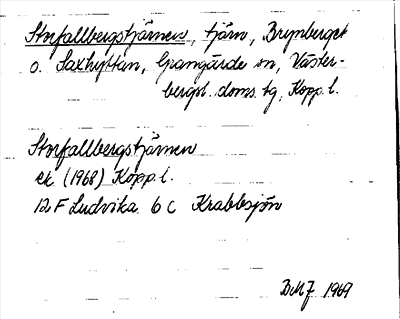 Storfallbergstjärnen, tjärn, Brynberget
o. Saxhyttan, Grangärde sn, Väster-
bergsl. doms. tg, Kopp. l.
Storfallbergstjärnen
ek. (1968) Kopp. l.
12 F Ludvika 6 c Krabbsjön
BMJ 1969